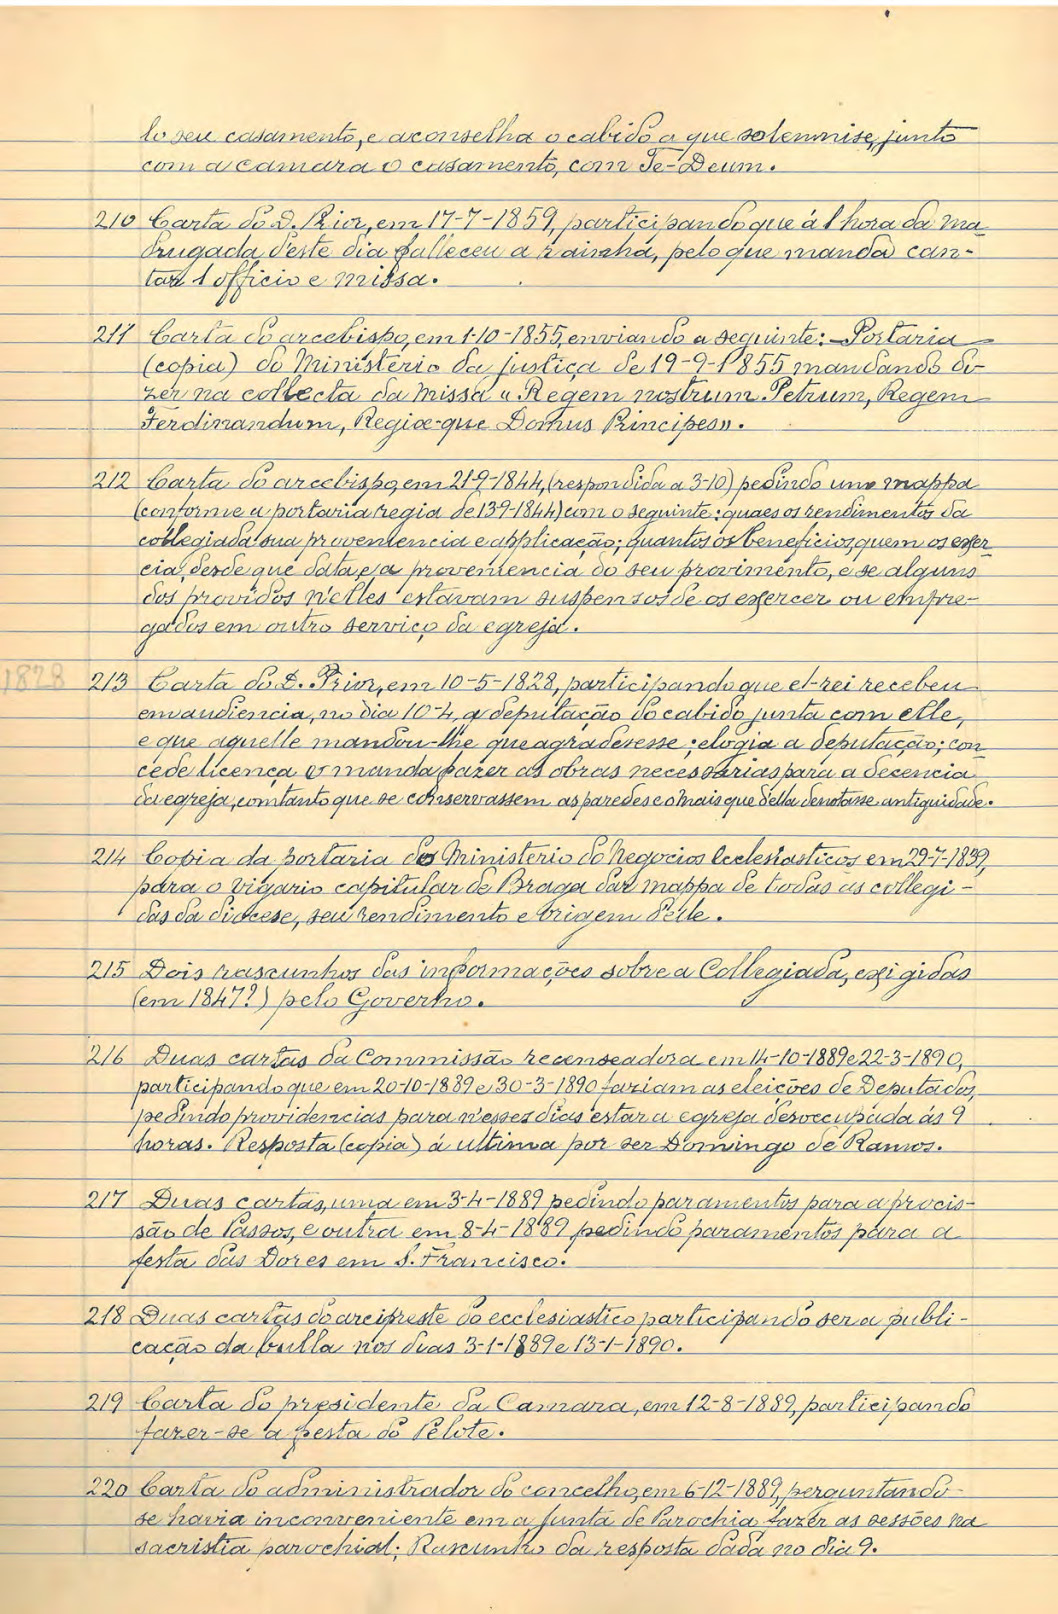 lo seu casamento, e aconselha o cabido a que solemnise, junto
com a camara o casamento, com Te-Deum.
210 Carta do D. Prior, em 17-7-1859, participando que á 1 hora da ma-
drugada d'este dia falleceu a rainha, pelo que manda can-
tar 1 officio e missa.
211 Carta do arcebispo, em 1-10-1855, enviando a seguinte: - Portaria
(copia) do Ministerio da justiça de 19-9-1855 mandando di-
zer na collecta da missa "Regem nostrum Petrum, Regem
Ferdinandum, Regiæ-que Domus Principes".
212 Carta do arcebispo, em 21-9-1844, (respondida a 3-10) pedindo um mappa
(conforme a portaria regia de 13-9-1844) com o seguinte: quaes os rendimentos da
collegiada sua proveniencia e applicação; quantos os beneficios, quem os exer-
cia, desde que data e a proveniencia do seu provimento, e se alguns
dos providos n'elles estavam suspensos de os exercer ou empre-
gados em outro serviço da egreja.
1828
213 Carta do D. Prior, em 10-5-1828, participando que el-rei recebeu
em audiencia, no dia 10-4, a deputação do cabido junta com elle,
e que aquelle mandou-lhe que agradesesse; elogia a deputação; con-
cede licença e manda fazer as obras necessarias para a decencia
da egreja, comtanto que se conservassem as paredes e o mais que d'ella denotasse antiguidade.
214 Copia da portaria do Ministerio do Negocios Ecclesiasticos em 29-7-1839,
para o vigario capitular de Braga dar mappa de todas as collegi-
das da diocese, seu rendimento e origem d'elle.
215 Dois rascunhos das informações sobre a Collegiada, exigidas
(em 1847?) pelo Governo.
216 Duas cartas da Commissão recenseadora em 14-10-1889 e 22-3-1890,
participando que em 20-10-1889 e 30-3-1890 faziam as eleições de Deputados,
pedindo providencias para n'esses dias estar a egreja desoccupada ás 9
horas. Resposta (copia) á ultima por ser Domingo de Ramos.
217 Duas cartas, uma em 3-4-1889 pedindo paramentos para a procis-
são de Passos, e outra em 8-4-1889 pedindo paramentos para a
festa das Dores em S. Francisco.
218 Duas cartas do arcipreste do ecclesiastico participando ser a publi-
cação da bulla nos duas 3-1-1889 e 13-1-1890.
219 Carta do presidente da Camara, em 12-8-1889, participando
fazer-se a festa do Pelote.
220 Carta do administrador do concelho, em 6-12-1889, perguntando
se havia inconveniente em a Junta de Parochia fazer as sessões na
sacristia parochial; Rascunho da resposta dada no dia 9.